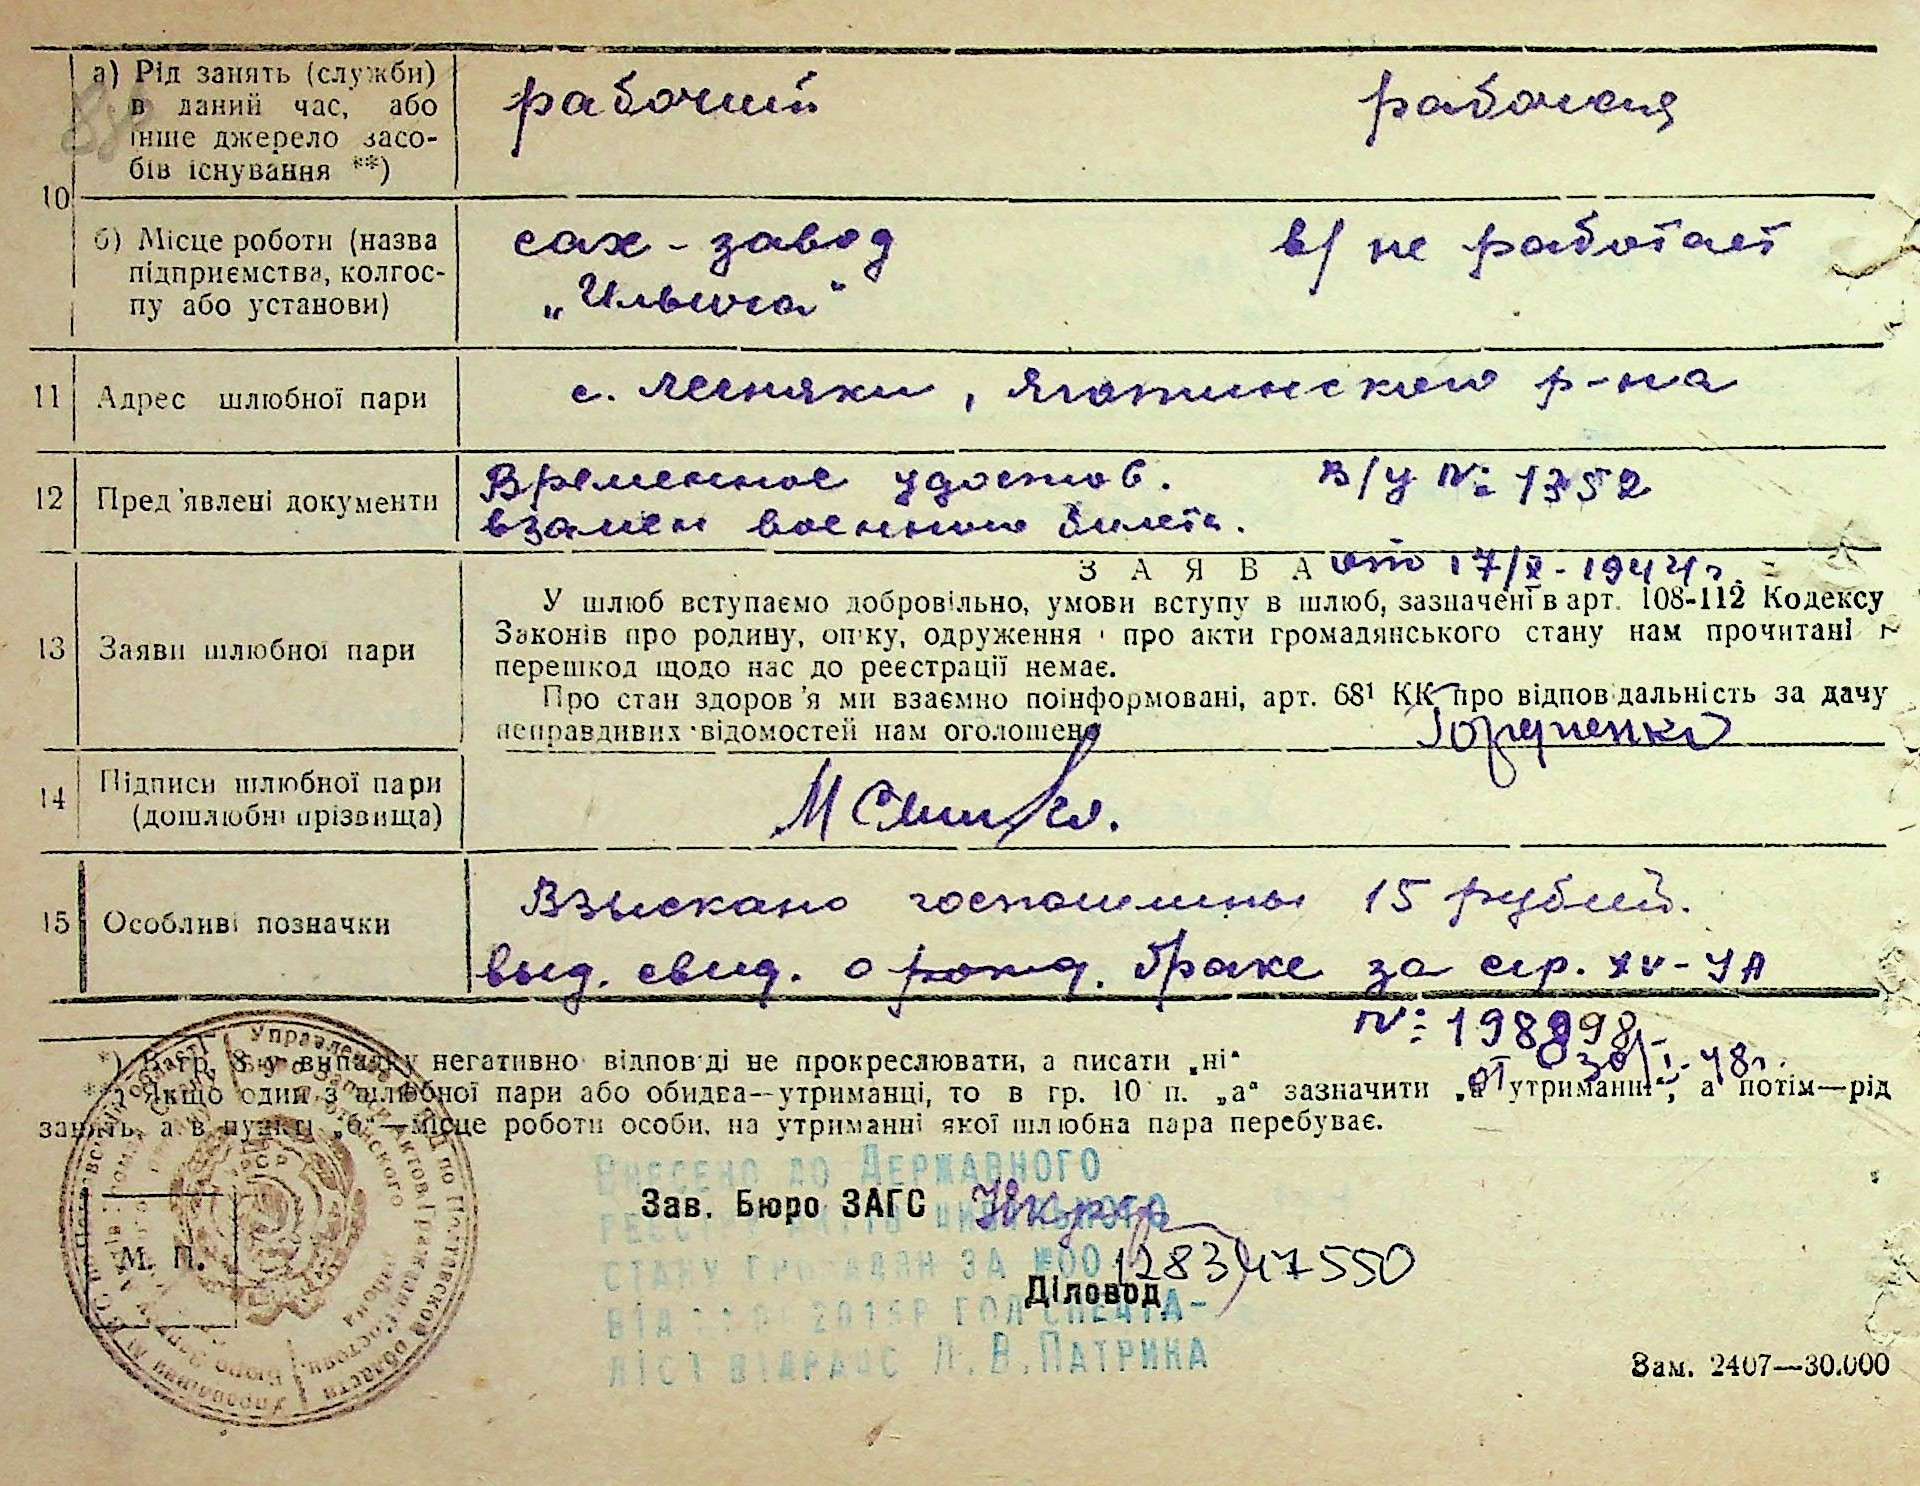 а) Рід занять (служби) рабочий рабочая
в даний час, або
інше джерело засо-
бів існування **)
10
б) Місце роботи (назва сах-завод в/ не работает
підприємства, колгос- „Ильича"
пу або установи)
11 Адрес шлюбної пари с. Лесняки, Яготинского р-на
12 Пред'явлені документи Временное удостов. в/у №: 1352
взамен военного билета.
ЗАЯВА от 17/X-1944г.
У шлюб вступаємо добровільно, умови вступу в шлюб, зазначені в арт. 108-112 Кодексу
13 Заяви шлюбної пари Законів про родину, опіку, одруження і про акти громадянського стану нам прочитані і
перешкод щодо нас до реєстрації немає.
Про стан здоров'я ми взаємно поінформовані, арт. 68¹ КК про відповідальність за дачу
неправдивих відомостей нам оголошено
14 Підписи шлюбної пари
(дошлюбні прізвища)
15 Особливі позначки Взыскано госпошлины 15 рублей.
выд. свид. о рожд. браке за сер. XV-УА
№: 198998
от 30/I-48г.
*) В гр. 8 у випадку негативної відповіді не прокреслювати, а писати „ні"
**) Якщо один з шлюбної пари або обидва—утриманці, то в гр. 10 п. „а" зазначити „на утриманні", а потім—рід
занять, а в пункті „б"—місце роботи особи, на утриманні якої шлюбна пара перебуває.
Внесено до Державного
Зав. Бюро ЗАГС
стану громадян за №00 128347550
Діловод
М. П.
ліст відрацс Л.В.Патрика
Зам. 2407—30.000